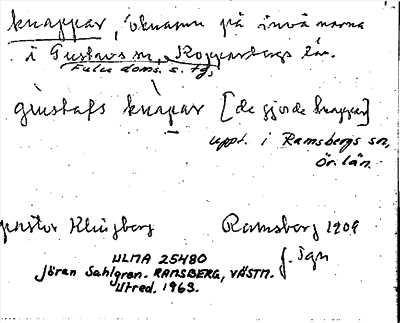 knappar, öknamn på invånarna
i Gustavs sn, Kopparbergs län.
Falu doms. s. tg,
gústafs knapar [de gjorde knappar]
uppt. i Ramsbergs sn,
Ör. län.
pastor Klingberg Ramsberg 1909
J. Sgn
ULMA 25480
Jöran Sahlgren. RAMSBERG, VÄSTM.
Utred. 1963.